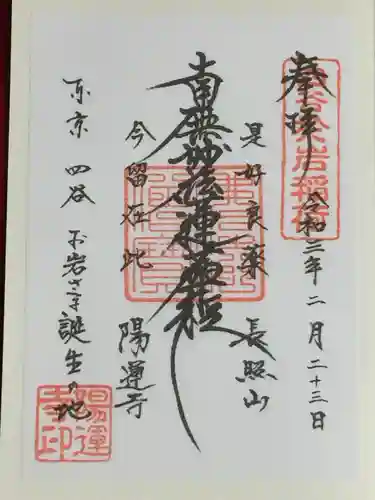 奉拝
四谷於岩稲荷
令和三年二月二十三日
是好良薬
長照山
南無妙法蓮華経
今留在此
陽運寺
東京 四谷 お岩さま誕生の地
陽運寺印